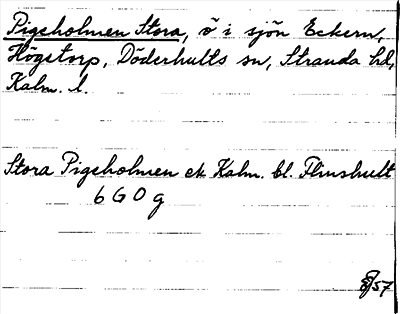 Pigeholmen Stora, ö i sjön Eckern,
Högetorp, Döderhults sn, Stranda hd,
Kalm. l.
Stora Pigeholmen ek Kalm. bl. Flinshult
6 G 0 g
57